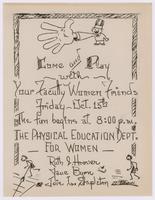 Come and Play
with
Your Faculty Women friends
Friday - Oct. 15th
The fun begins at 8:00 p.m.
THE PHYSICAL EDUCATION DEPT.
FOR WOMEN
Ruth S. Hoover
Jane Byrn
Lois Stapleton